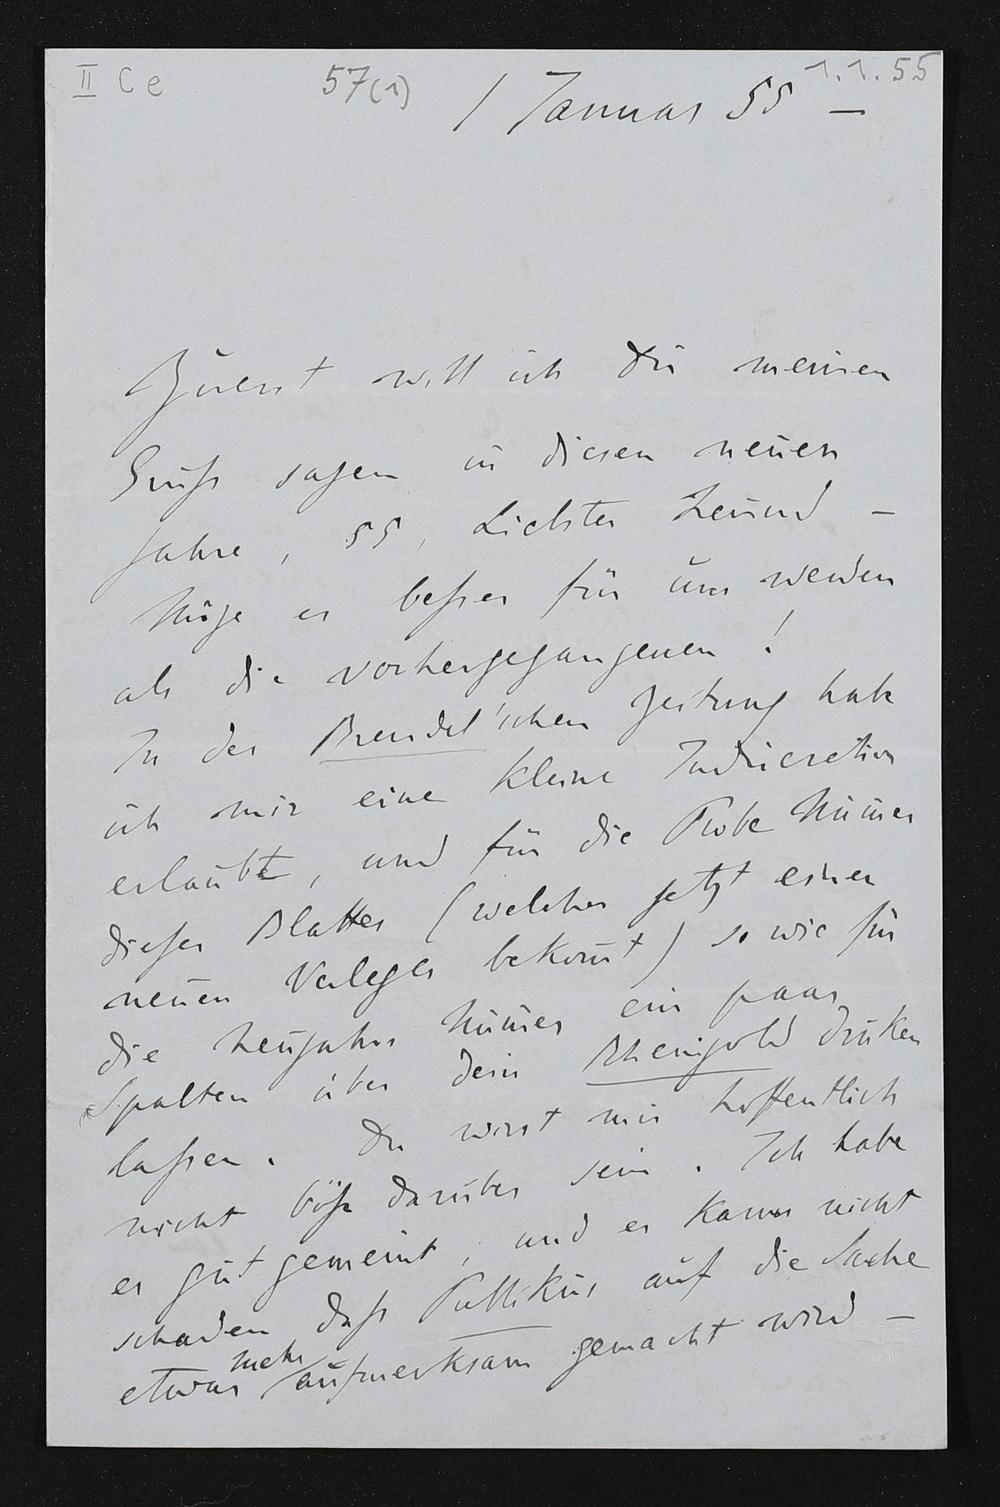 II C e 57(1) 1.1.55
1 Januar 55 —
Zuerst will ich Dir meinen
Gruß sagen in diesen neuen
Jahre, 55, Liebster Freund —
Möge es beßer für uns werden
als die vorhergegangenen!
In der Brendel'schen Zeitung habe
ich mir eine kleine Indiscretion
erlaubt, und für die Probe Num̄er
dieses Blattes (welches jetzt einen
neuen Verleger bekom̄t) so wie für
die Neujahrs Num̄er ein paar
Spalten über dein Rheingold druken
laßen. Du wirst mir hoffentlich
nicht böse darüber sein. Ich habe
es gut gemeint, und es kann nicht
schaden daß Publikum auf die Sache
etwas mehr aufmerksam gemacht wird —